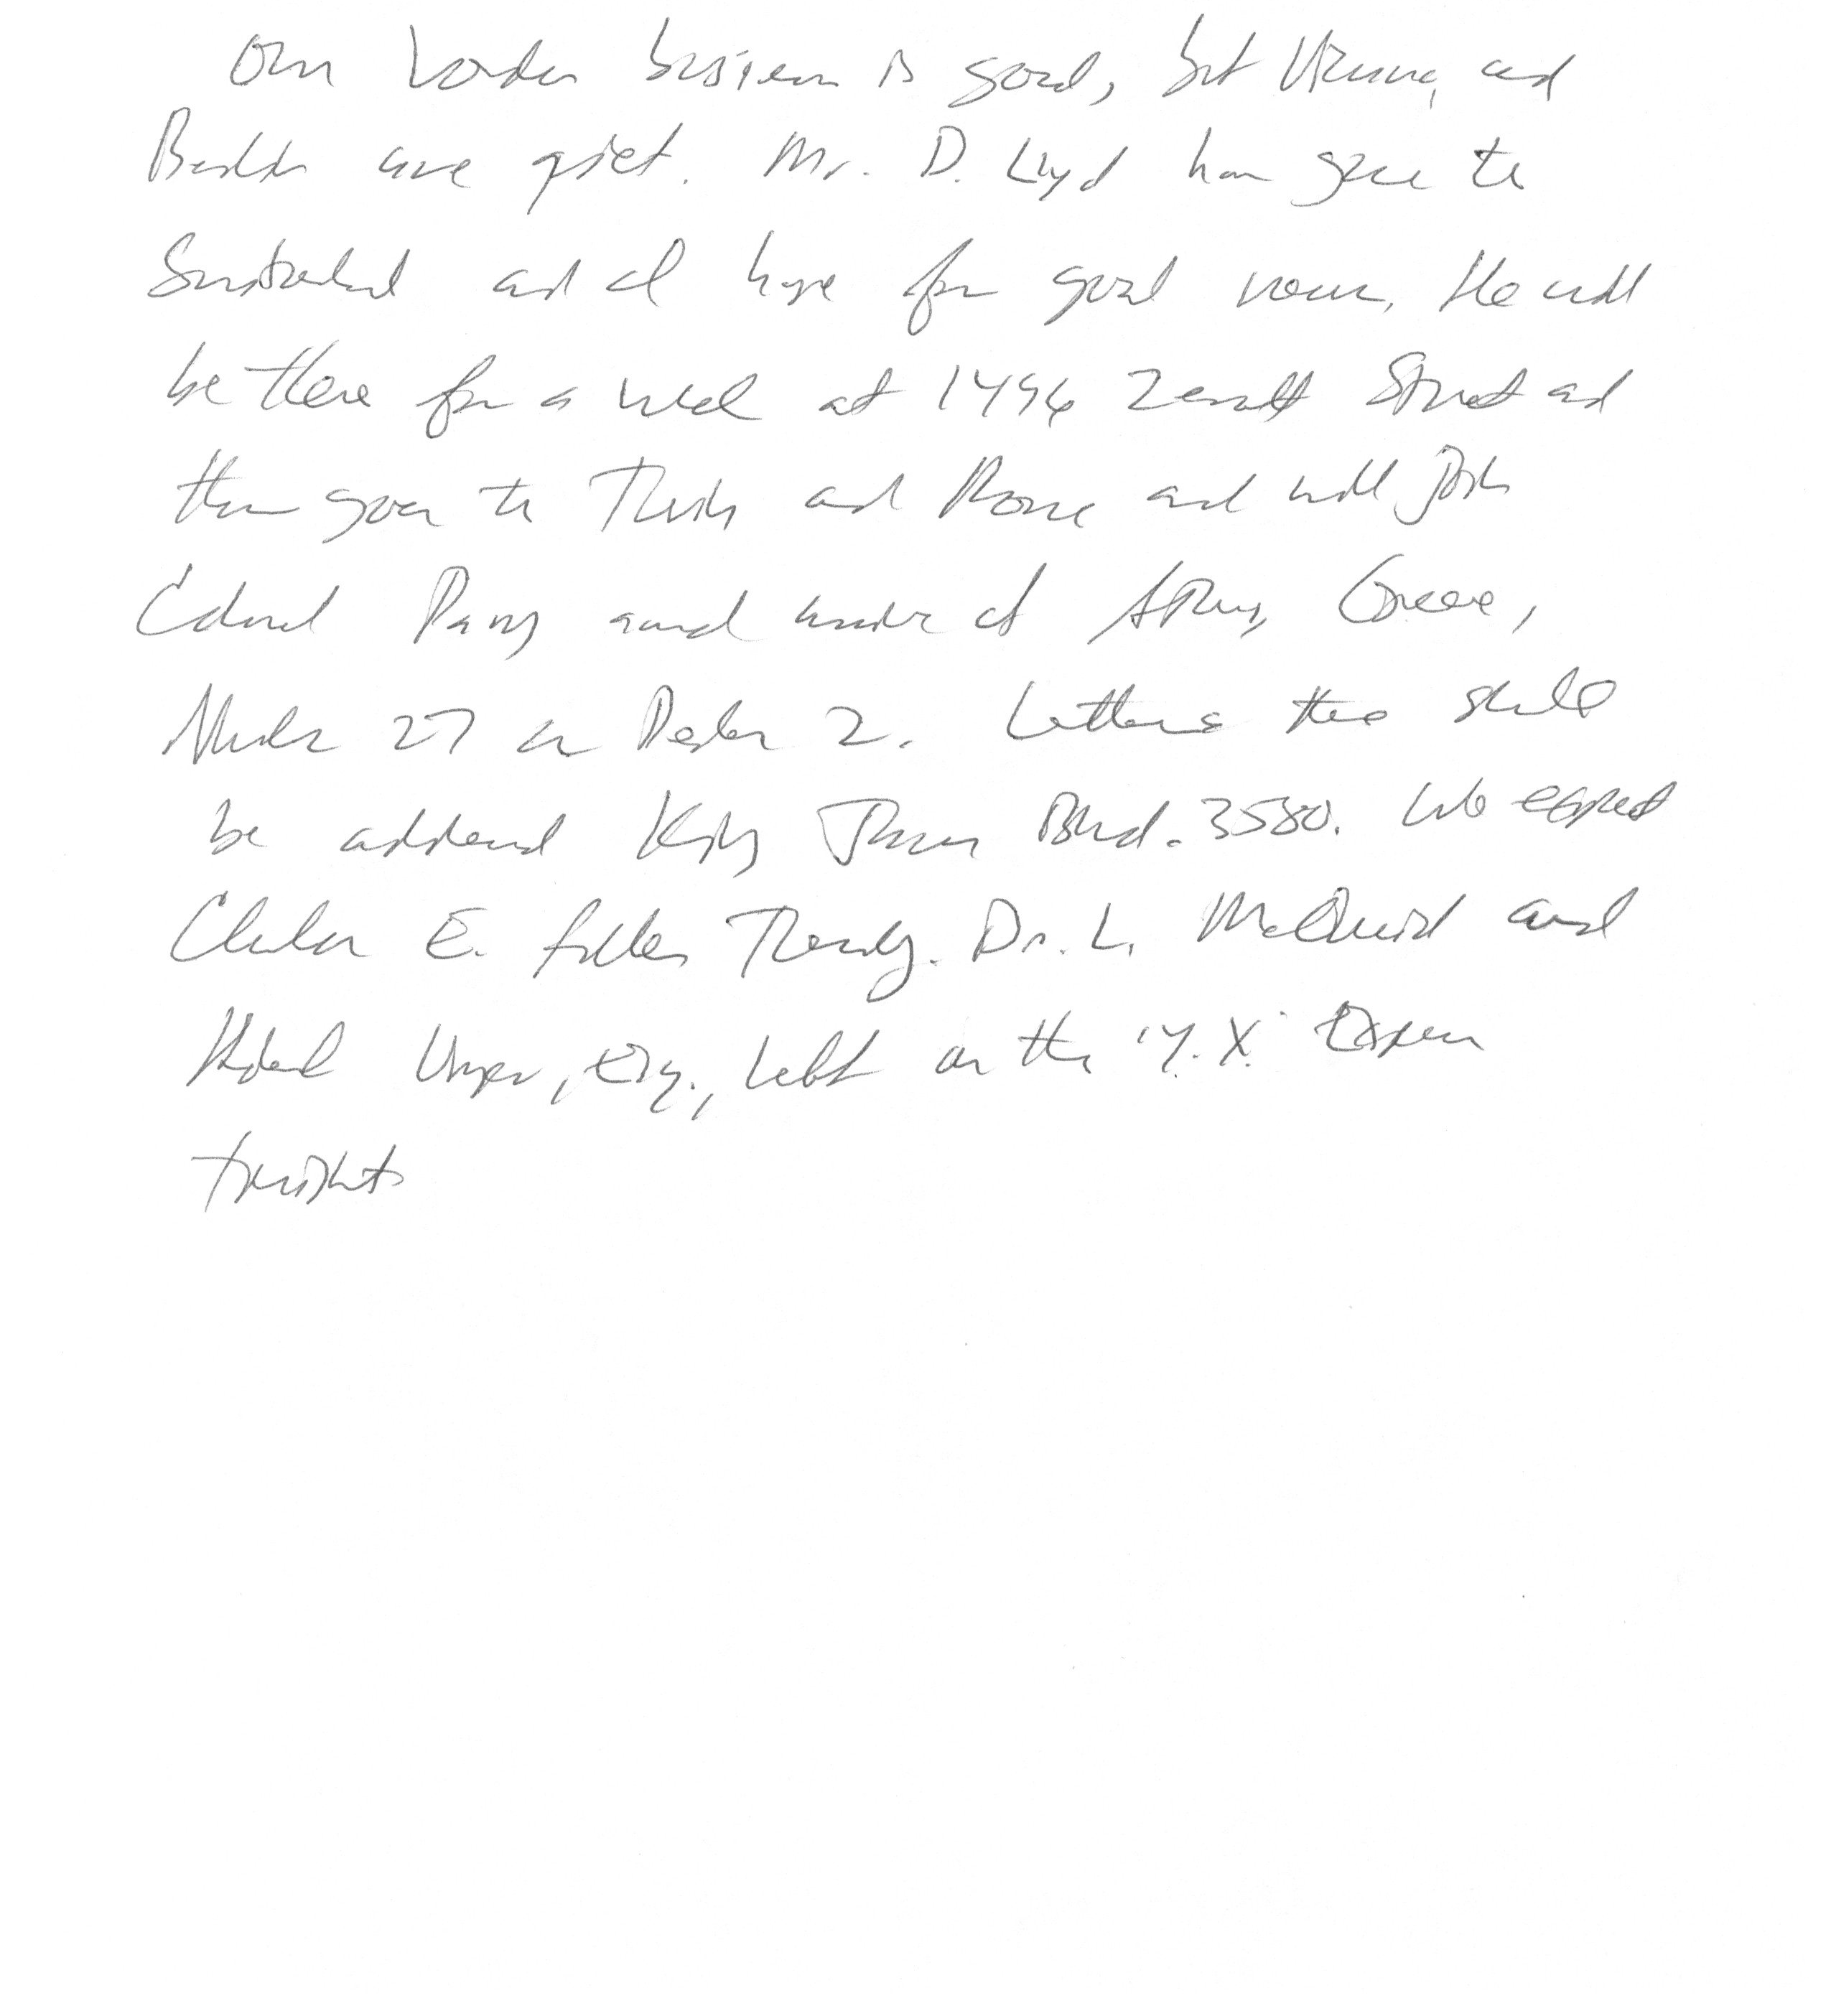 Our London business is good, but Vienna and
Berlin are quiet. Mr. D. Lloyd has gone to
Switzerland and I hope for good news. He will
be there for a week at 1496 Zermott Street and
then goes to Turin and Rome and will join
Colonel Parry and arrive at Athens, Greece,
November 27 or December 2. Letters there should
be addressed King James Blvd. 3580. We expect
Charles E. Fuller Tuesday. Dr. L. McQuaid and
Robert Unger, Esq., left on the 'Y.X.' Express
tonight